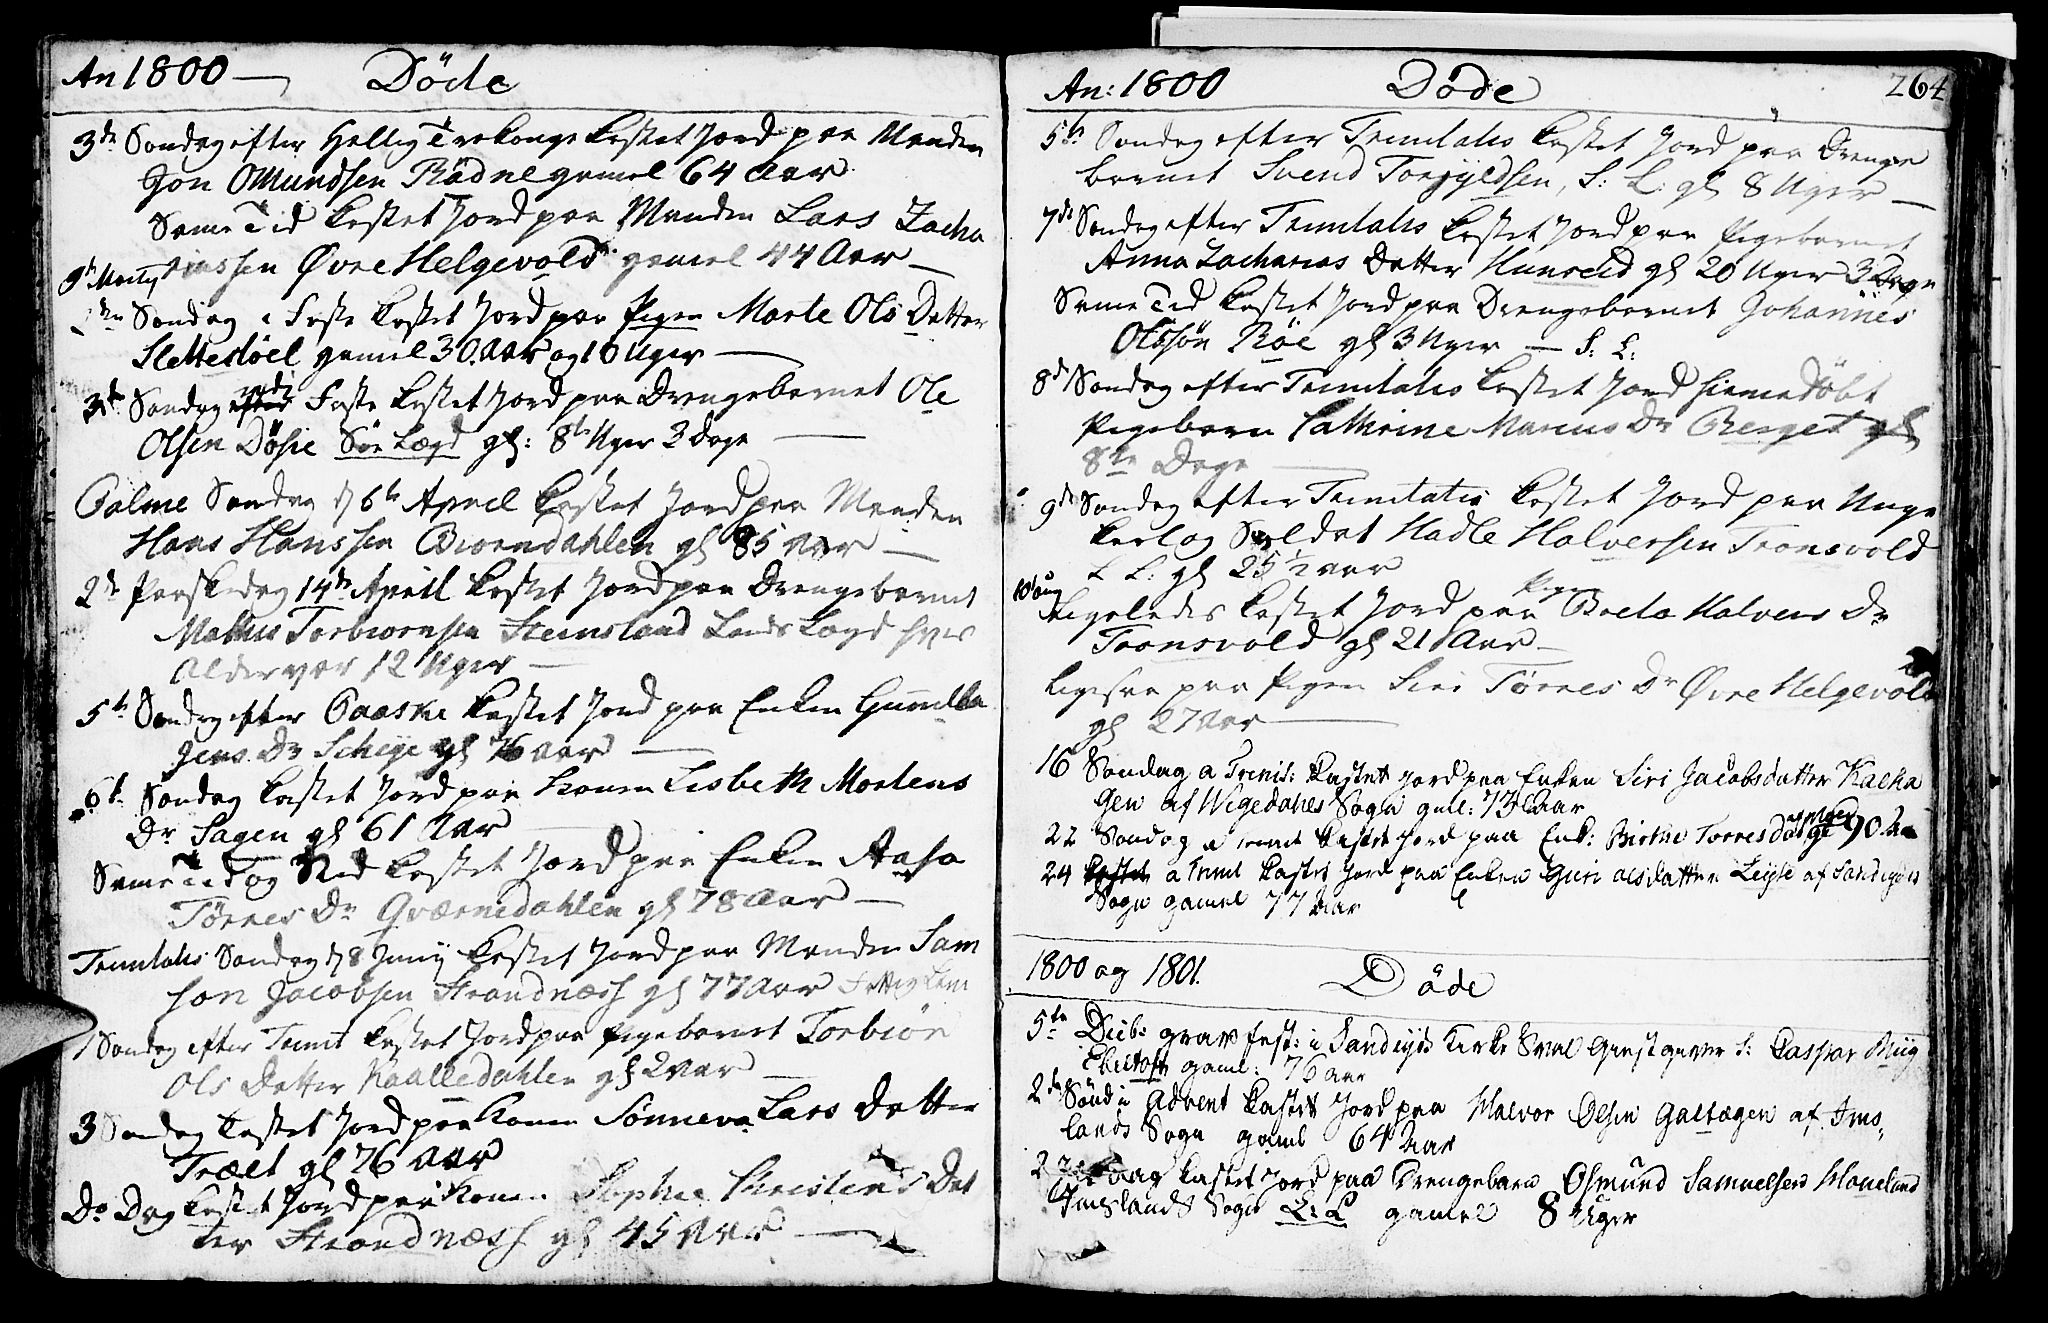 An 1800 — Döde
3de Söndag efter Hellig Trekonge kastet Jord paa Manden
Jon Omundsen Rödne gamel 64 Aar
Same Tid kastet Jord paa Manden Lars Zacha
riassen Øvre Helgevold gamel 44 Aar —
Söndag i Faste kastet Jord paa Pigen Marte Ols Datter
Slettestöel gamel 30 Aar og 10 Uger —
3de Söndag udi Faste kastet Jord paa Drengebarnet Ole
Olsen Dösie Sör Lægd gl: 8te Uger 3 Dage —
Palme Söndag d 6te April kastet Jord paa Manden
Hans Hanssen Biorndahlen gl 85 Aar —
2de Paaskedag 14de April kastet Jord paa Drengebarnet
Mathis Torbiornsen Steensland Lands Lægd hvis
Alder var 12 Uger —
5te Söndag efter Paaske kastet Jord paa Enken Gunilla
Jens Dr Scheye gl 76 Aar —
6te Söndag kastet Jord paa Konen Lisbeth Mortens
Dr Sagen gl 61 Aar —
Same Tid og Stæd kastet Jord paa Enken Aasa
Törres Dr Qværnedahlen gl 78 Aar —
Trinitatis Söndag d 8 Junij kastet Jord paa Manden Sam
son Jacobsen Strandnæss gl 77 Aar Fattig Lem
1 Söndag efter Trinit kastet Jord paa Pigebarnet Torbiör
Ols Datter Kaalledahlen gl 2 Aar —
3 Söndag kastet Jord paa Konen Sönneva Lars Datter
Trælt gl 76 Aar
Do Dag kastet Jord paa Konen Sophie Christens Dat
ter Strandnæss gl 45 Aar —
An: 1800 Döde 264
5te Söndag efter Trinitatis kastet Jord paa Drenge
barnet Svend Torgyldsen, S: L: gl 8 Uger —
7de Söndag efter Trinitatis kastet Jord paa Pigebarnet
Anna Zacharias Datter Hunselid gl 20 Uger 3 Dage
Same Tid kastet Jord paa Drengebarnet Johannes
Olssön Röe gl 3 Uger — S: L:
8de Söndag efter Trinitatis kastet Jord hiemedöbt
Pigebarn Cathrine Marcus Dr Berget gl
8te Dage —
9de Söndag efter Trinitatis kastet Jord paa Unge
karl og Soldat Hadle Halversen Tronsvold
L L: gl 25 1/2 Aar
10 Aug Ligeledes kastet Jord paa Pigen Breta Halvers Dr
Tronsvold gl 21 Aar —
Ligesaa paa Pigen Siri Törres Dr Øvre Helgevold
gl 27 Aar —
16 Söndag a Trinit: kastet Jord paa Enken Siri Jacobsdatter Kalha
gen af Wigedahls Sogn gml: 73 Aar
22 Söndag a Trinit kastet Jord paa Enk: Birthe Torresdatter 90 Aar
24 a Trinit kastet Jord paa Enken Guri Olsdatter Leyse af Sandeyds
Sogn gamel 77 Aar
1800 og 1801. Döde
5te Decbr gravfest: i Sandeyds Kirke Giestgiver S: Caspar
Ebeltoft gaml: 76 aar
2de Sönd i Advent kastet Jord paa Malvor Olsen Galtægen af Ims,
lands Sogn gaml 64 Aar
dag kastet Jord paa Drengebarn Osmund Samuelsen
Imslands Sogn L: L gamel 8 Uger